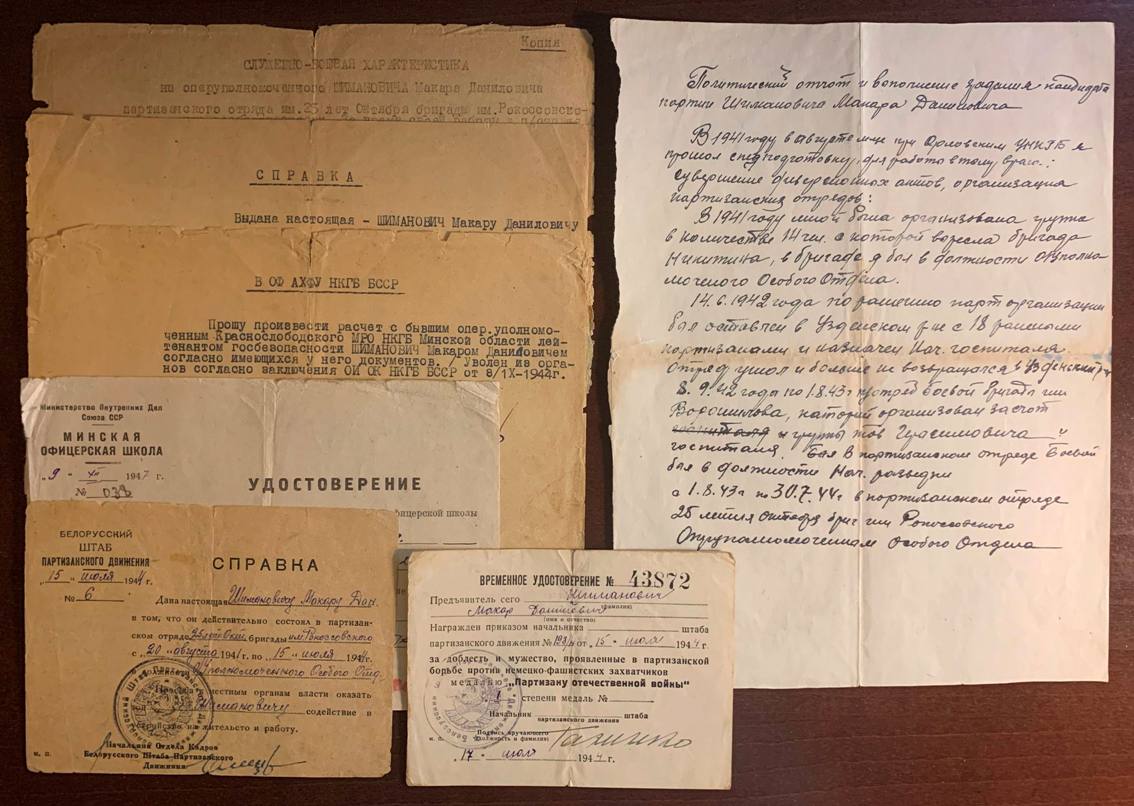 Копия
СЛУЖЕБНО-БОЕВАЯ ХАРАКТЕРИСТИКА
на оперуполномоченного ШИМАНОВИЧА Макара Даниловича
партизанского отряда им.25 лет Октября бригады им.Рокоссовско-
СПРАВКА
Выдана настоящая - ШИМАНОВИЧ Макару Даниловичу
В ОФ АХФУ НКГБ БССР
Прошу произвести расчет с бывшим опер.уполномо-
ченным Краснослободского МРО НКГБ Минской области лей-
тенантом госбезопасности ШИМАНОВИЧ Макаром Даниловичем
согласно имеющихся у него документов. Уволен из орга-
нов согласно заключения ОИ ОК НКГБ БССР от 8/IX-1944г.
Министерство Внутренних Дел
Союза ССР
МИНСКАЯ
ОФИЦЕРСКАЯ ШКОЛА
"9 - XII 1947 г.
№ 038
УДОСТОВЕРЕНИЕ
фицерской школы
БЕЛОРУССКИЙ
ШТАБ
ПАРТИЗАНСКОГО ДВИЖЕНИЯ
"15" июля 1944 г.
№ 6
СПРАВКА
Дана настоящая Шимановичу Макару Дан.
в том, что он действительно состоял в партизан-
ском отряде бригады им. Рокоссовского
с "20" августа 1941 г. по "15" июля 1944 г.
Уполномоченного Особого Отд.
местным органам власти оказать
Шимановичу содействие в
жительство и работу.
Начальник Отдела Кадров
Белорусского Штаба Партизанского
Движения
м. п.
ВРЕМЕННОЕ УДОСТОВЕРЕНИЕ № 43872
Предъявитель сего Шиманович
(фамилия)
Макар Данилович
(имя и отчество)
Награжден приказом начальника штаба
партизанского движения № от "15" июля 1944 г.
за доблесть и мужество, проявленные в партизанской
борьбе против немецко-фашистских захватчиков
медалью „Партизану отечественной войны"
степени медаль №
Начальник штаба
партизанского движения
Подпись вручающего
(должность и фамилия)
м. п.
"17" июля 1944 г.
Политический отчот и вополнение задания кандидата
партии Шимановича Макара Даниловича
В 1941 году в августе м-це при Орловским УНКГБ я
прошол спецподготовку, для работо в толу врага:
сувершение диверсионнах актов, организация
партизанских отредов:
В 1941 году мной была организована група
в количестве 14 чел. с которой воресла бригада
Никитина, в бригаде я бол в должности
моченого Особого Отдела.
14.6.1942 года по решению парт организации
бол оставлен в Узденском р-не с 18 ранеными
портизанами и назначен Нач. госпиталя
отряд ушол и больше не возвращался в Узденский р-н
8.9.42 годы по 1.8.43 г. отред Боевой бригады им
Ворошилова, каторий организован за счот
и групты тов Герасимовича "
госпиталя. Бол в портизанском отреде Боевой
бол в должности Нач. разведки
с 1.8.43 г. по 30.7.44 г. в портизанском отреде
25 летия октября бриг им Рокоссовского
Особого Отдела